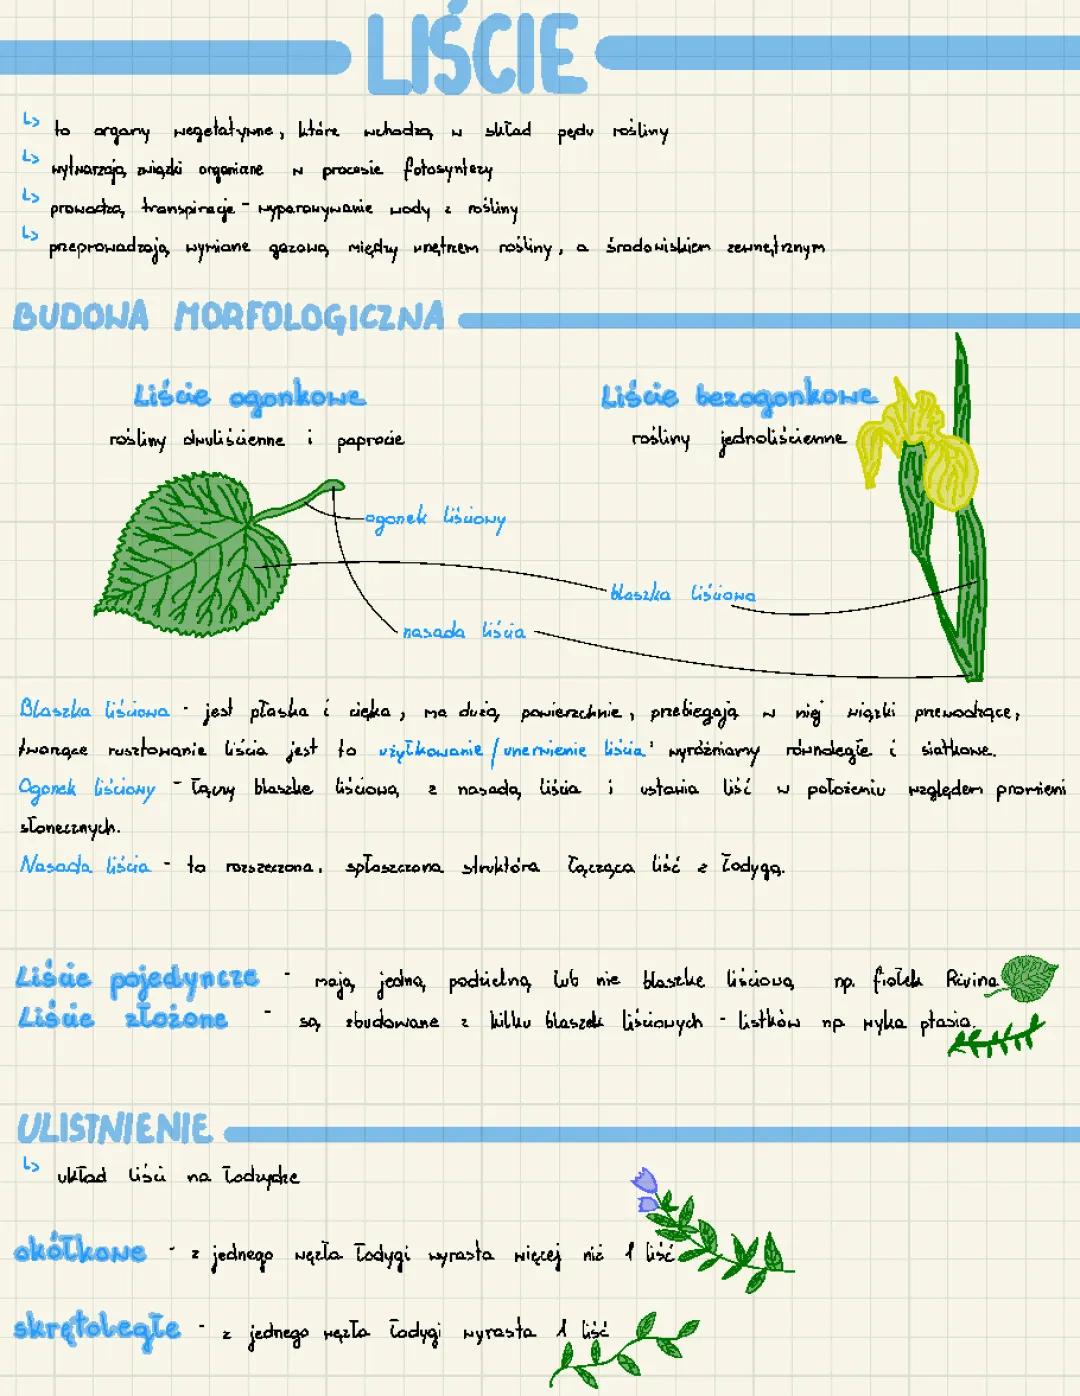 LIŚCIE
↳ to organy wegetatywne, które wchodzą w skład pędu rośliny
↳ wytwarzają związki organiczne w procesie fotosyntezy
↳ prowadzą transpiracje - wyparowywanie wody z rośliny
↳ przeprowadzają wymiane gazową między wnętrzem rośliny, a środowiskiem zewnętrznym
BUDOWA MORFOLOGICZNA
Liście ogonkowe
Liście bezogonkowe
rośliny dwuliścienne i paprocie
rośliny jednoliścienne
ogonek liściowy
blaszka liściowa
nasada liścia
Blaszka liściowa - jest płaska i cięka, ma dużą powierzchnie, przebiegają w niej wiązki przewodzące,
tworzące rusztowanie liścia jest to użyłkowanie / unerwienie liścia' wyróżniamy równoległe i siatkowe.
Ogonek liściowy - łączy blaszke liściową z nasadą liścia i ustawia liść w położeniu względem promieni
słonecznych.
Nasada liścia - to rozszeczona, spłaszczona struktóra łącząca liść z łodygą.
Liście pojedyncze - mają jedną podzielną lub nie blaszke liściową np. fiołek Rivina
Liście złożone - są zbudowane z kilku blaszek liściowych - listków np wyka ptasia.
ULISTNIENIE
↳ układ liści na łodydze
okółkowe - z jednego węzła łodygi wyrasta więcej niż 1 liść
skrętoległe - z jednego węzła łodygi wyrasta 1 liść